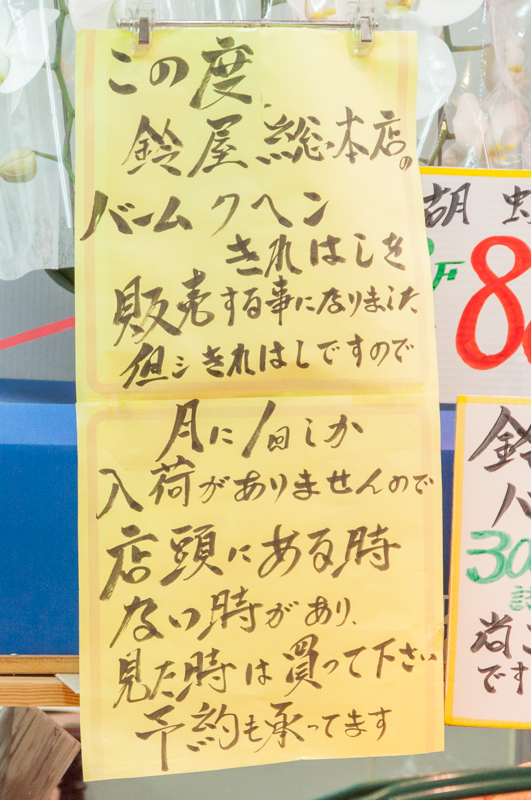 この度
鈴屋総本店の
バームクヘン
きれはしを
販売する事になりました
但シきれはしですので
月に1回しか
入荷がありませんので
店頭にある時
ない時があり、
見た時は買って下さい
予約も承ってます
胡
8
鈴
ハ
30
尚
です